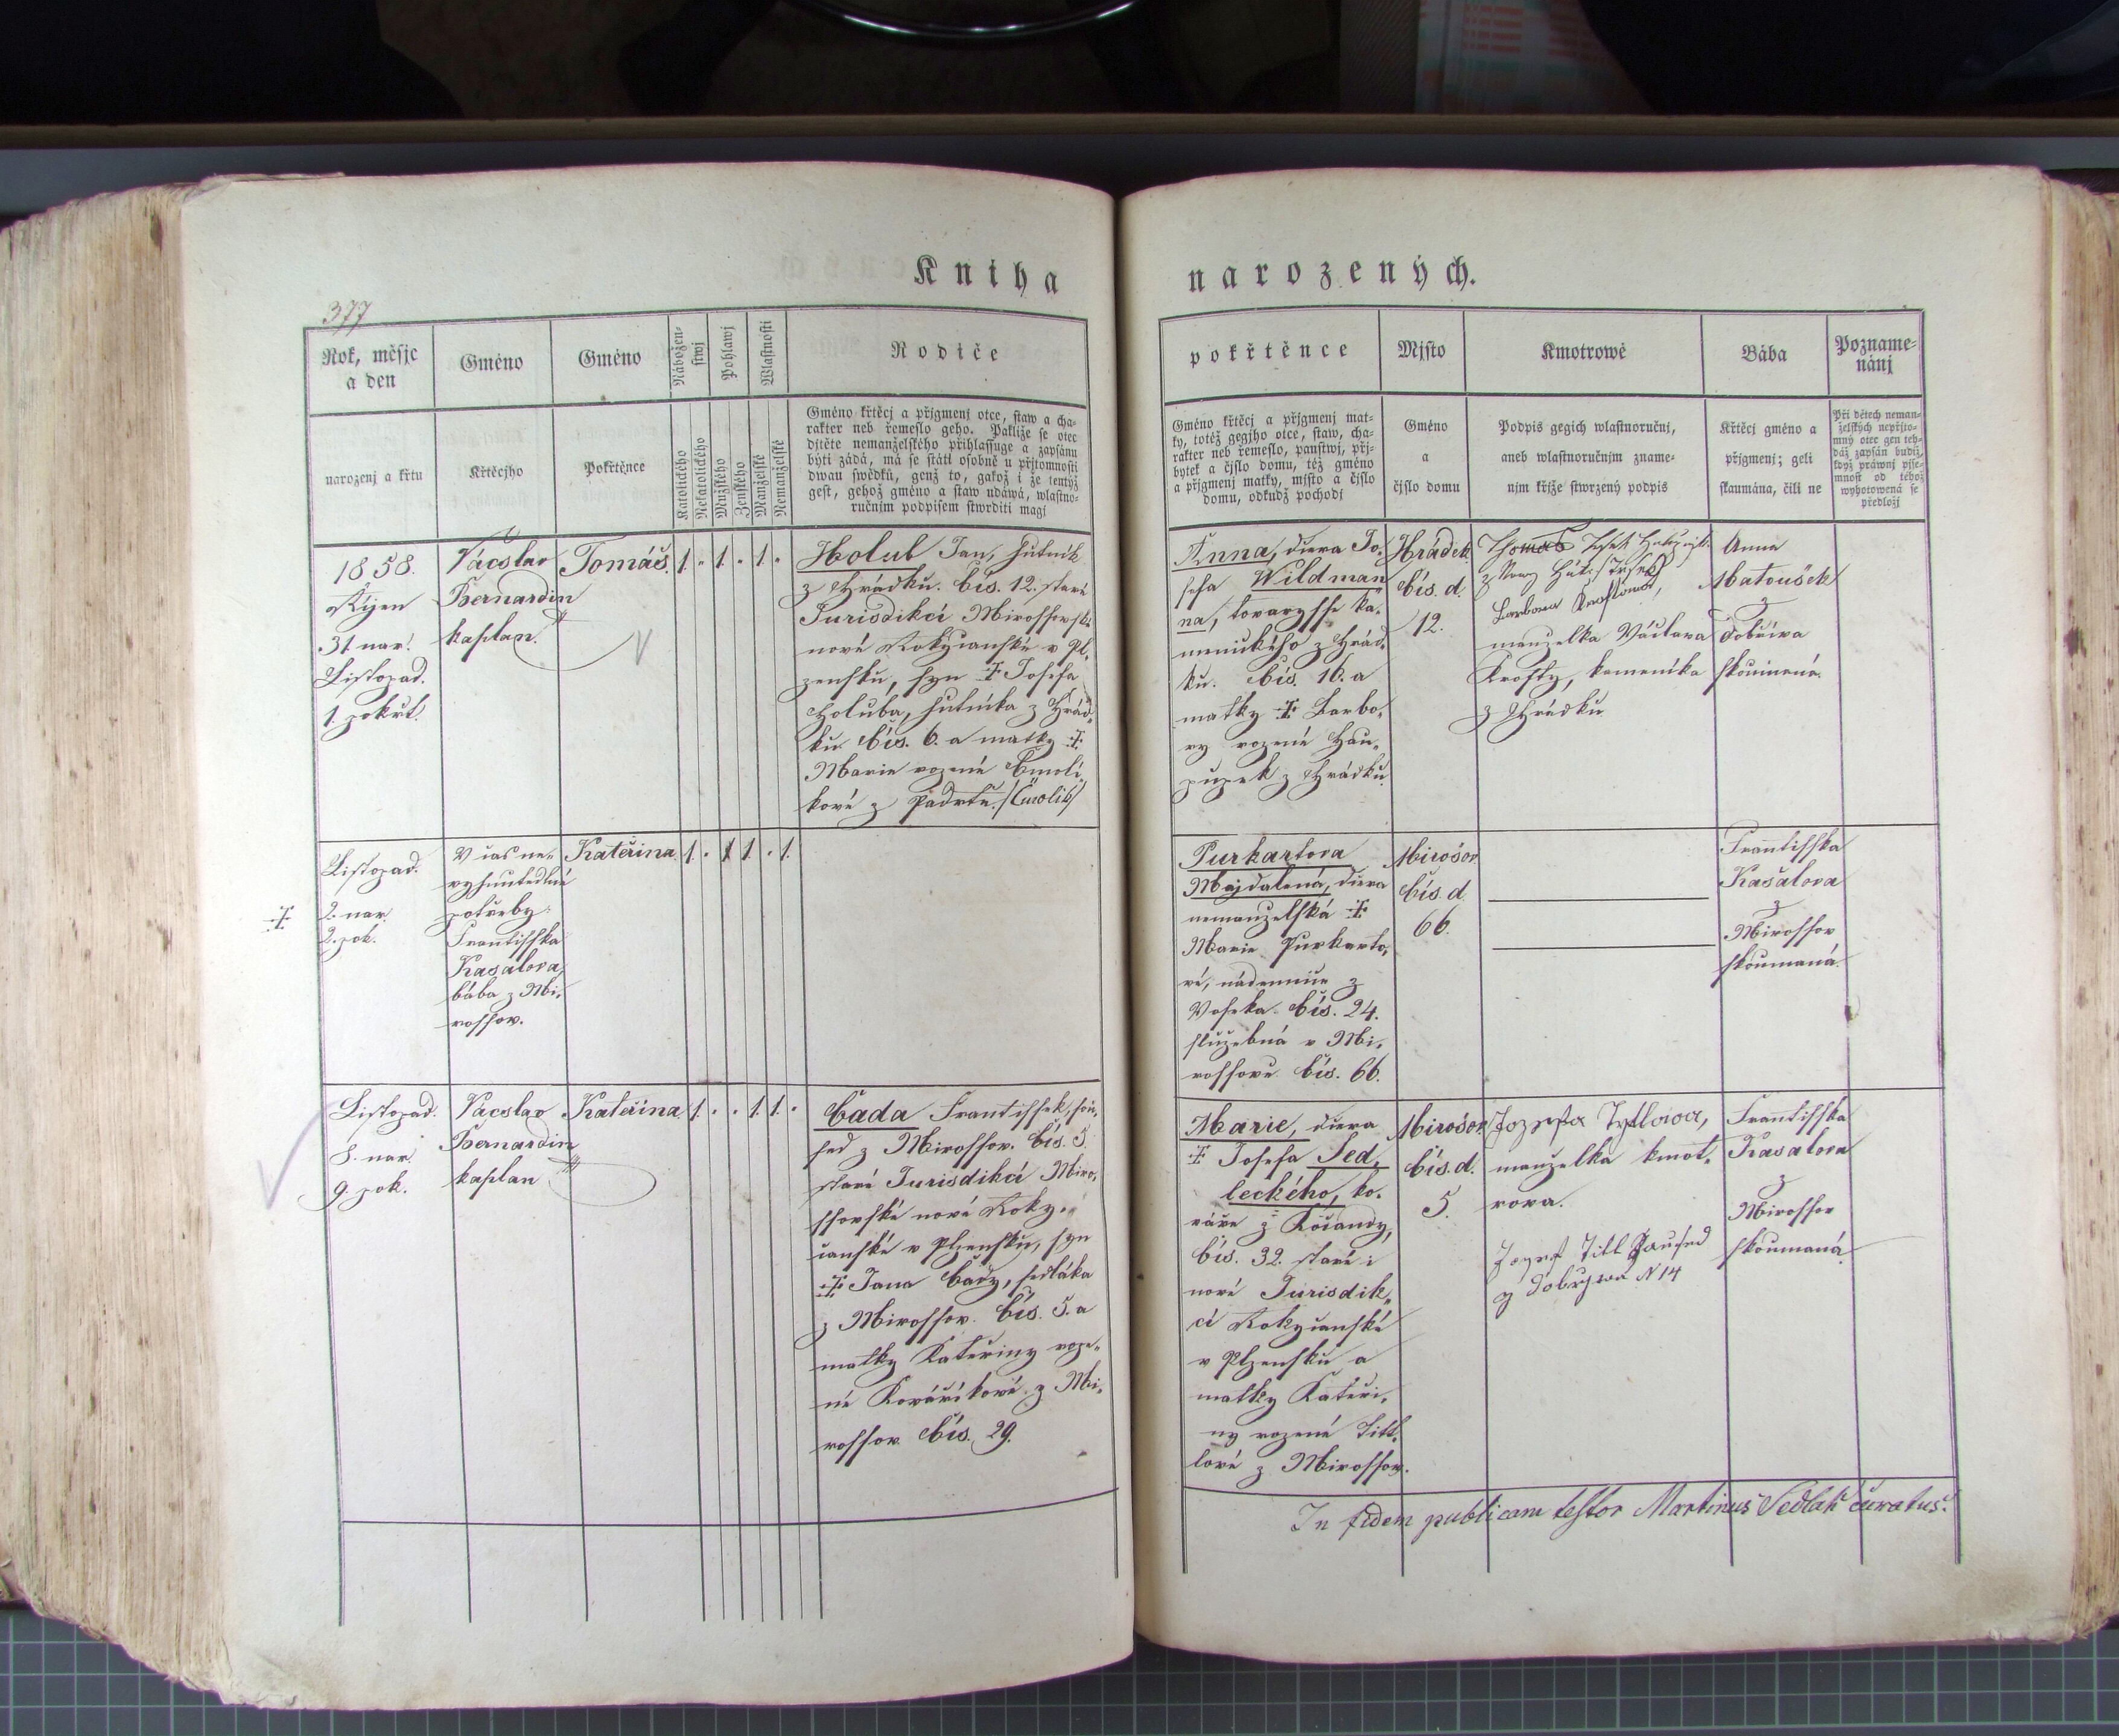 Kniha narozených.
377
Rok, měsjc
a den
Gméno
Gméno
Nábožen-
stwj
Pohlawj
Wlastnosti
Rodiče
narozenj a křtu
Křtěcjho
Pokřtěnce
Katolického
Nekatolického
Mužského
Ženského
Manželské
Nemanželské
Gméno křtěcj a přjgmenj otce, staw a cha-
rakter neb řemeslo geho. Pakliže se otec
djtěte nemanželského přihlassuge a zapsánu
býti žádá, má se státi osobně u přjtomnosti
dwau swědků, genž to, gakož i že tentýž
gest, gehož gméno a staw udáwá, wlastno-
ručnjm podpisem stwrditi magj
1858.
Řijen
31. nar.
Listopad.
1. pokřt.
Vácslav
Bernardin
kaplan.
Tomáš.
1. " 1. " 1. "
Holub Jan, hutník
z Hrádku. čís. 12. staré
Jurisdikcí Mirossovské
nové Rokycanské v Pl-
zensku, syn ☩ Josefa
Holuba, hutníka z Hrád-
ku čís. 6. a matky ☩
Marie rozené Čmolí-
kové z Padrtě. /Čmolik/
☩
Listopad.
2. nar.
2. pok.
V čas ne-
vyhnutedlné
potřeby:
Frantisska
Kasalova,
bába z Mi-
rossov.
Kateřina
1. " 1. " 1.
Listopad.
8. nar.
9. pok.
Vácslav
Bernardin
kaplan
Kateřina
1. " " 1. 1. "
Čada Frantissek, sou-
sed z Mirossov. čís. 5.
staré Jurisdikcí Miro-
ssovské nové Roky-
canské v Plzensku, syn
☩ Jana Čady, sedláka
z Mirossov. čís. 5. a
matky Kateřiny roze-
né Kováříkové z Mi-
rossov čís. 29.
pokřtěnce
Mjsto
Kmotrowé
Bába
Pozname-
nánj
Gméno křtěcj a přjgmenj mat-
ky, totéž gegjho otce, staw, cha-
rakter neb řemeslo, panstwj, přj-
bytek a čjslo domu, též gméno
a přjgmenj matky, mjsto a čjslo
domu, odkudž pochodj
Gméno
a
čjslo domu
Podpis gegich wlastnoručnj,
aneb wlastnoručnjm zname-
njm křjže stwrzený podpis
Křtěcj gméno a
přjgmenj; geli
skaumána, čili ne
Při dětech neman-
želských nepřjto-
mný otec gen teh-
dáž zapsán budiž,
když práwnj pjse-
mnost od téhož
wyhotowená se
předložj
Anna, dcera Jo-
sefa Wildman-
na, tovarysse ka-
menického z Hrád-
ku. čís. 16. a
matky ☩ Barbo-
ry rozené Hau-
pupek z Hrádku
Hrádek
čís. d.
12.
Thomas
Barbora
manzelka Václava
Krofty, kameníka
z Hrádku
Anna
Matoušek
z
Dobříva
skoumená.
Purkartova
Majdalená, dcera
nemanzelská ☩
Marie Purkarto-
vé, nádennice z
Voseka čís. 24.
služebná v Mi-
rossově čís. 66.
Mirošov
čís. d.
66.
Frantisska
Kasalova
z
Mirossov
skoumaná.
Marie, dcera
☩ Josefa Sed-
leckého, ko-
váře z Kočandy,
čís. 32. staré i
nové Jurisdik-
cí Rokycanské
v Plzensku a
matky Kateři-
ny rozené Titt-
lové z Mirossov.
Mirošov
čís. d.
5.
Jozefa Tytlova,
manzelka kmot-
rova.
Jozef Titl Saused
z Dobrziwa N 14
Frantisska
Kasalova
z
Mirossov
skoumaná.
In fidem publicam testor Martinus Sedlak curatus.